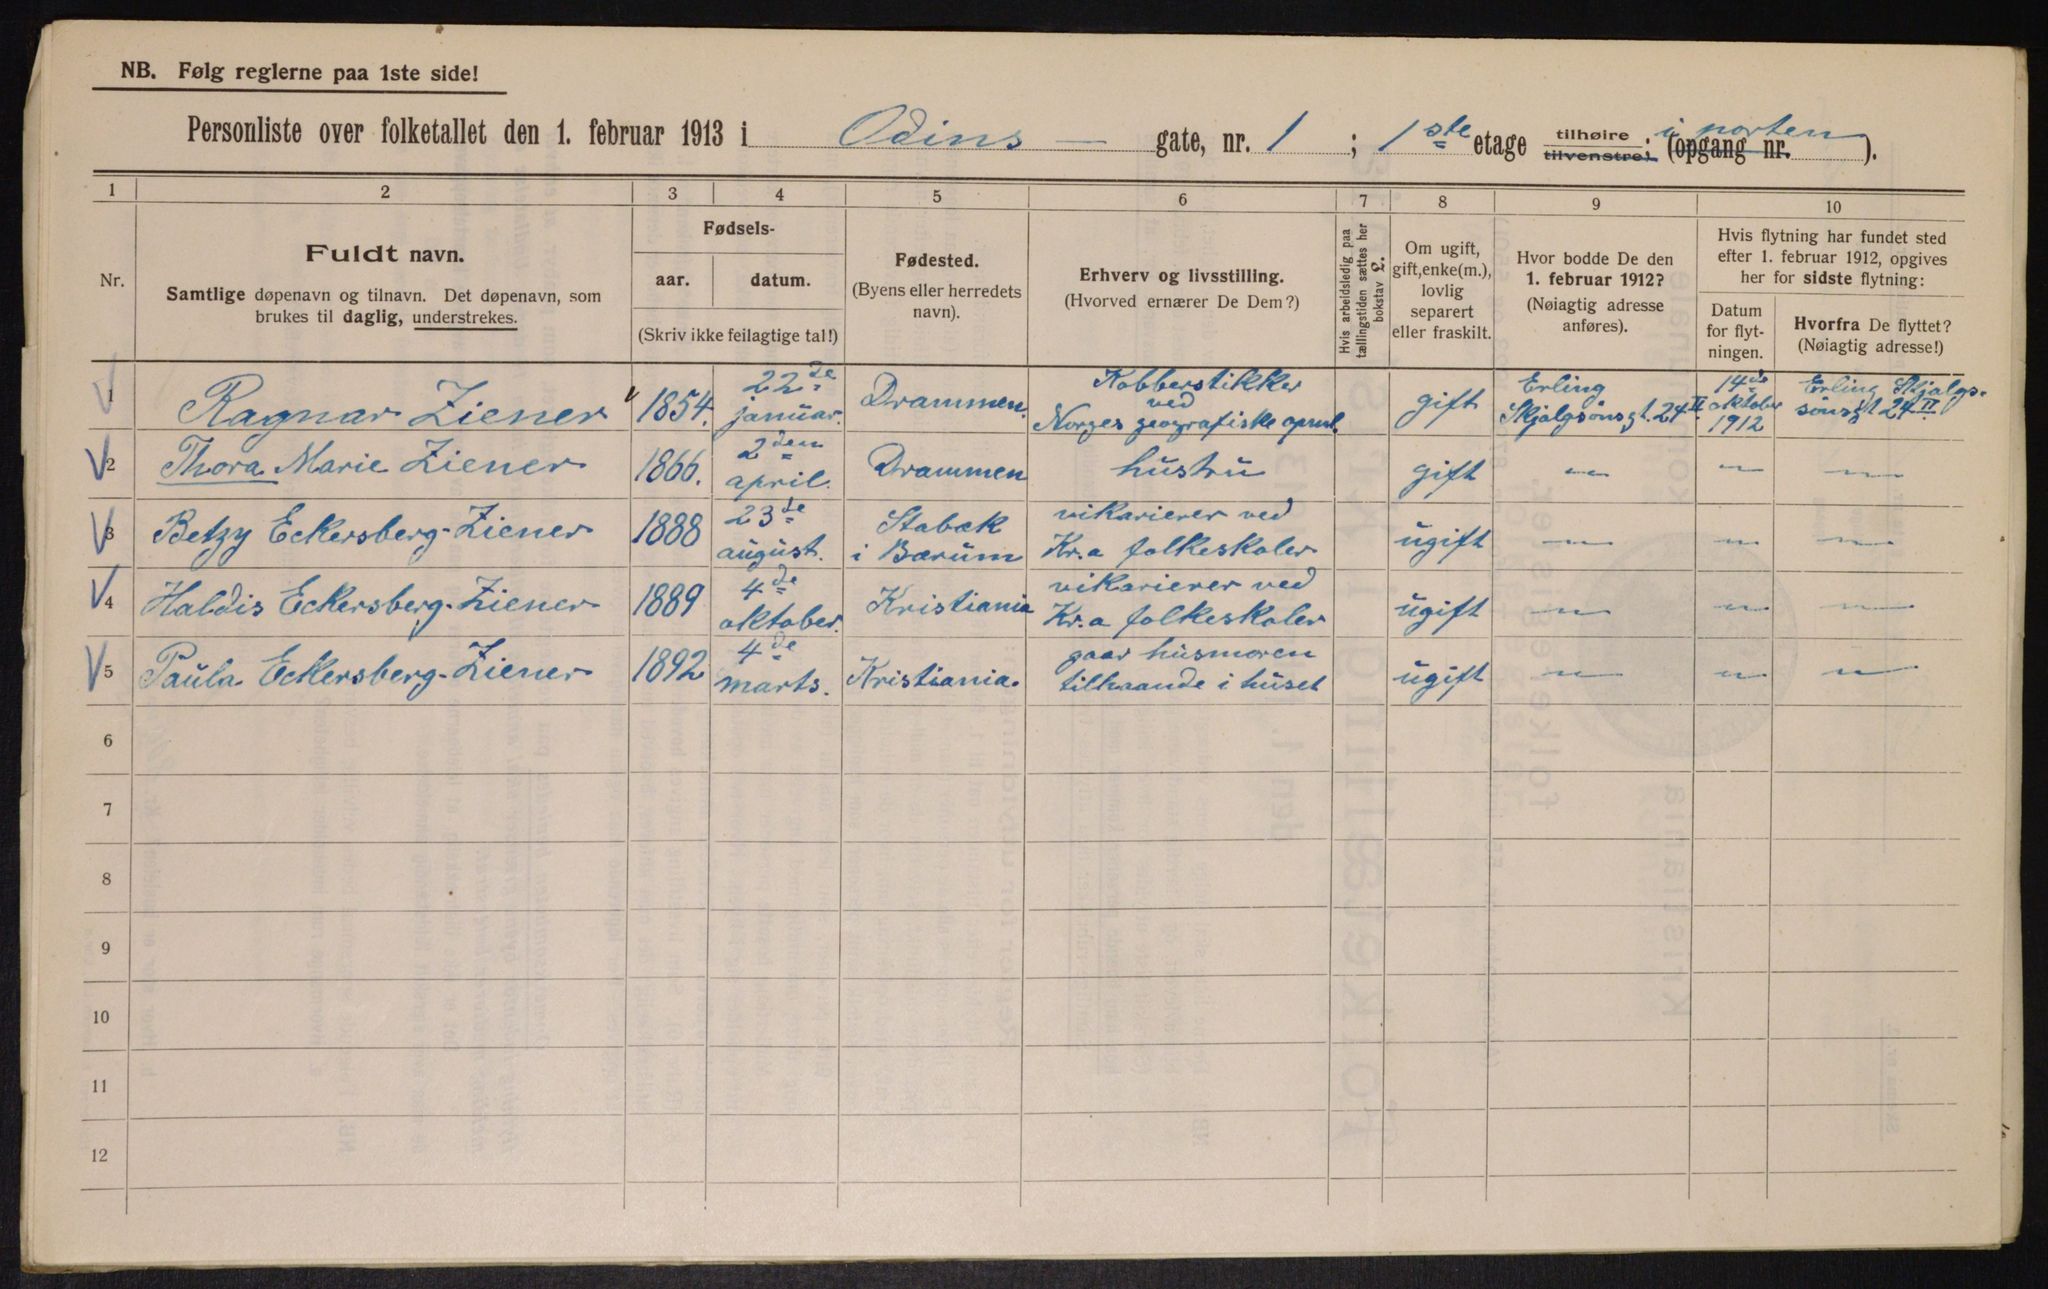 NB. Følg reglerne paa 1ste side!
Personliste over folketallet den 1. februar 1913 i Odins — gate, nr. 1 ; 1ste etage tilhøire tilvenstre; i porten (opgang nr. ).
1 2 3 4 5 6 7 8 9 10
Nr.
Fuldt navn.
Samtlige døpenavn og tilnavn. Det døpenavn, som
brukes til daglig, understrekes.
Fødsels-
aar. datum.
(Skriv ikke feilagtige tal!)
Fødested.
(Byens eller herredets
navn).
Erhverv og livsstilling.
(Hvorved ernærer De Dem?)
Hvis arbeidsledig paa
tællingstiden sættes her
bokstav L.
Om ugift,
gift, enke(m.),
lovlig
separert
eller fraskilt.
Hvor bodde De den
1. februar 1912?
(Nøiagtig adresse
anføres).
Hvis flytning har fundet sted
efter 1. februar 1912, opgives
her for sidste flytning:
Datum
for flyt-
ningen.
Hvorfra De flyttet?
(Nøiagtig adresse!)
1 Ragnar Ziener 1854. 22de januar. Drammen. Kobberstikker ved Norges geografiske opml. gift Erling Skjalgsønsgt. 24 II 14de oktober 1912 Erling Skjalgs-sønsgt 24 II
2 Thora Marie Ziener 1866. 2den april. Drammen hustru gift — " — — " — — " —
3 Betzy Eckersberg-Ziener 1888 23de august. Stabæk i Bærum vikarierer ved Kr.a folkeskoler ugift — " — — " — — " —
4 Haldis Eckersberg-Ziener 1889 4de oktober. Kristiania vikarierer ved Kr.a folkeskoler ugift — " — — " — — " —
5 Paula Eckersberg-Ziener 1892 4de marts. Kristiania. gaar husmoren tilhaande i huset ugift — " — — " — — " —
6
7
8
9
10
11
12